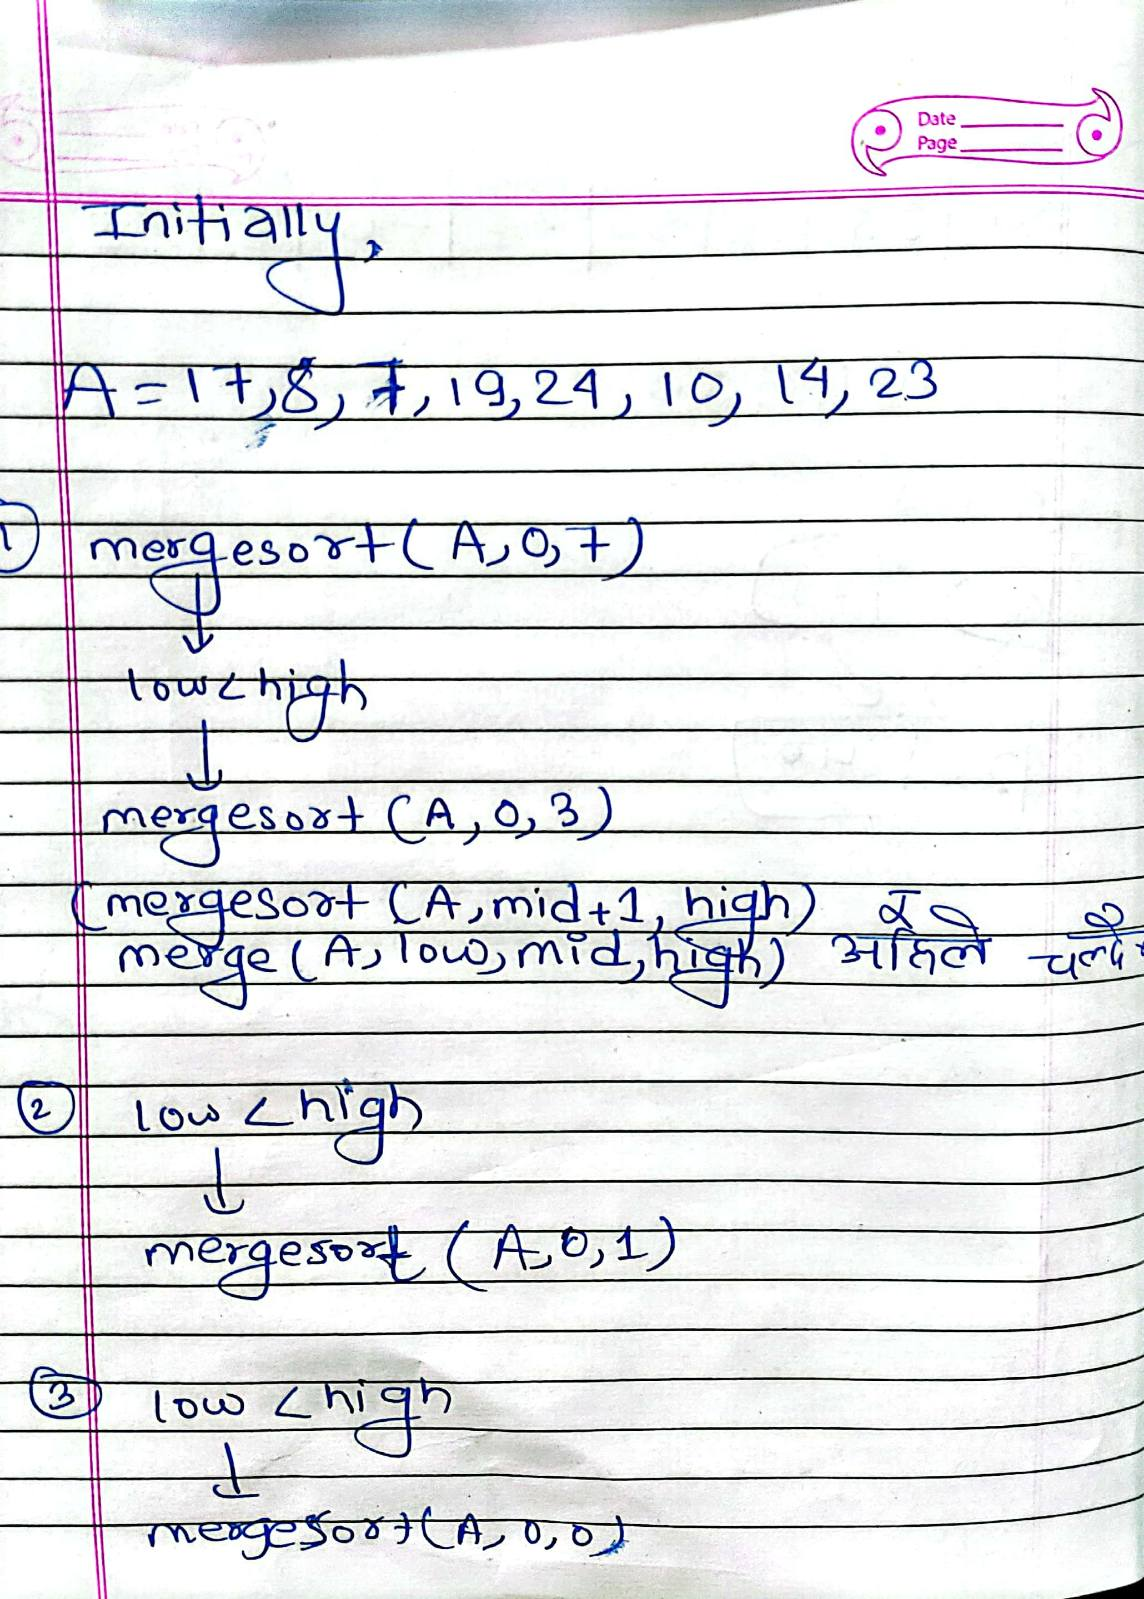 Date
Page
Initially,
A = 17, 8, 7, 19, 24, 10, 14, 23
1 mergesort(A,0,7)
↓
low<high
↓
mergesort (A,0,3)
(mergesort (A,mid+1,high) र
merge(A, low, mid, high) अहिले
2 low < high
↓
mergesort (A,0,1)
3 low < high
↓
mergesort(A,0,0)